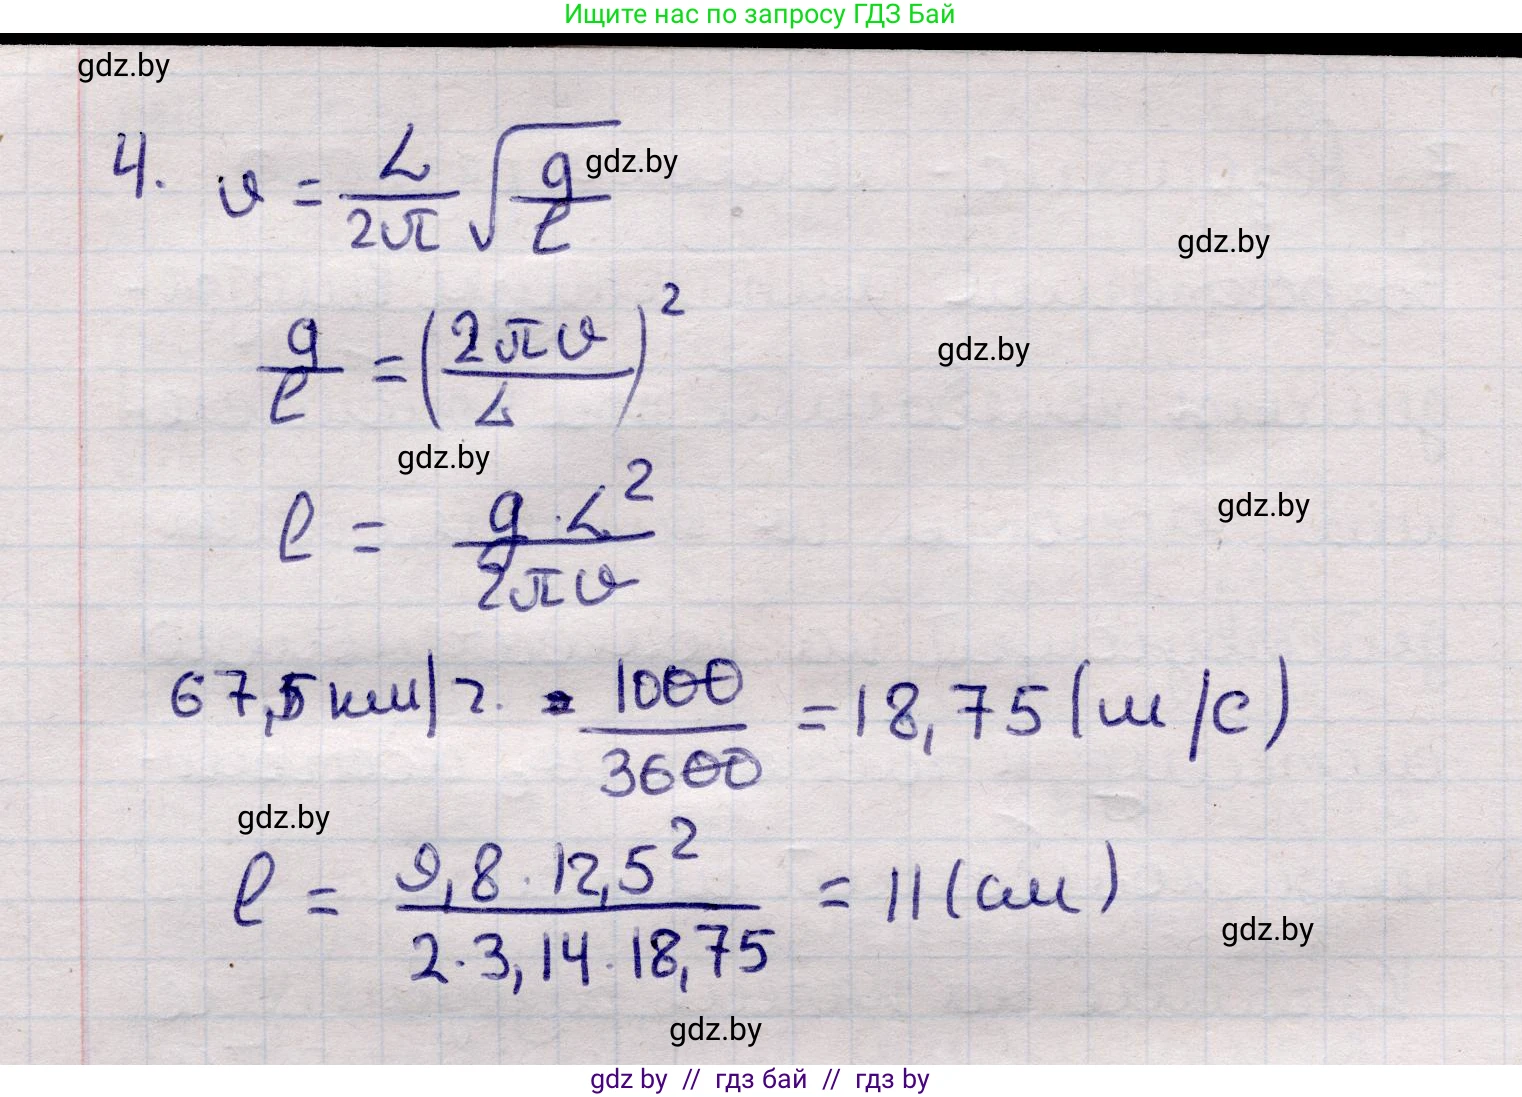 Ищите нас по запросу ГДЗ Бай
gdz.by
4. v = L/2π √(g/l) gdz.by
gdz.by
g/l = (2πv/L)²
gdz.by
gdz.by
l = g·L²/2πv
gdz.by
67,5 км/ч. = 1000/3600 = 18,75 (м/с)
gdz.by
l = 9,8·12,5²/2·3,14·18,75 = 11 (см)
gdz.by
gdz.by
gdz by // гдз бай // гдз by